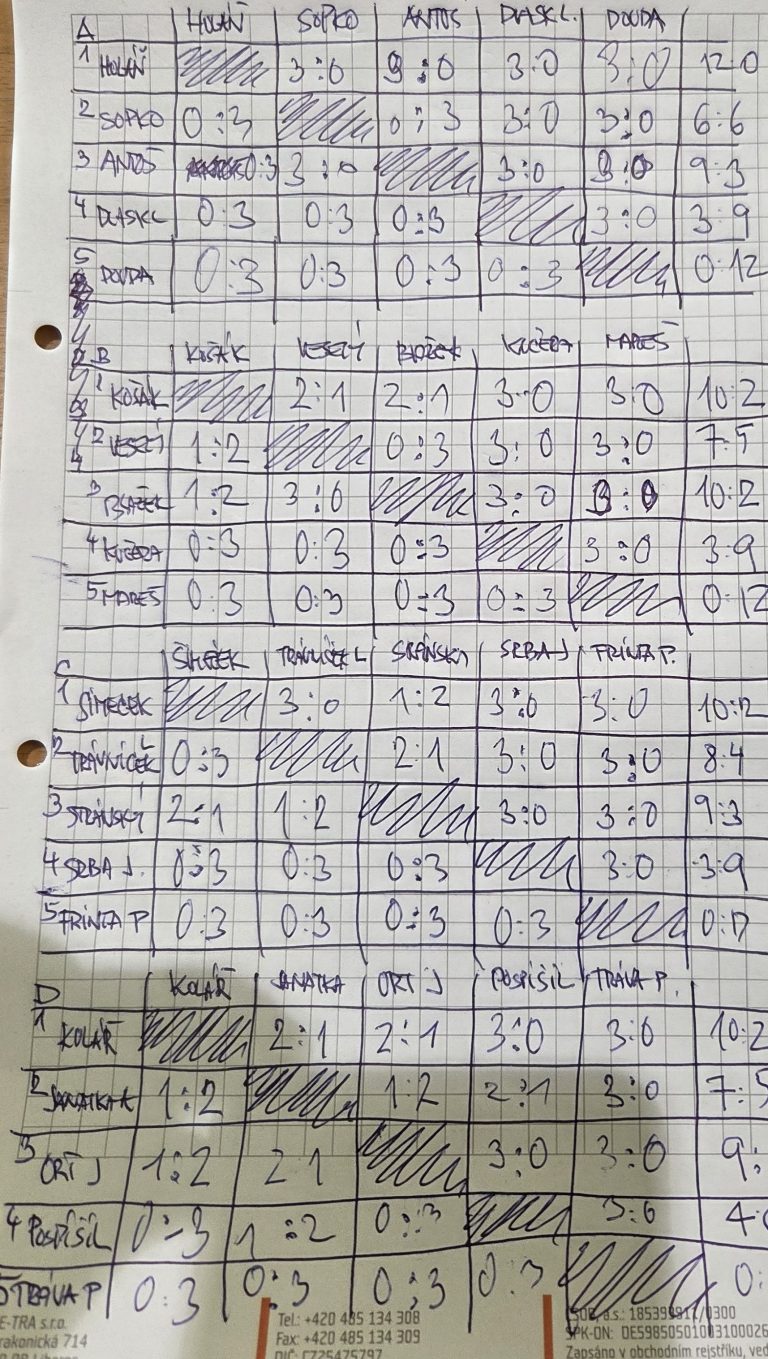 A HOLÁŇ SOPKO ANTOŠ DLASK L. DOUDA
1 HOLÁŇ 3:0 3:0 3:0 3:0 12:0
2 SOPKO 0:3 0:3 3:0 3:0 6:6
3 ANTOŠ 0:3 3:0 3:0 3:0 9:3
4 DLASK L 0:3 0:3 0:3 3:0 3:9
5 DOUDA 0:3 0:3 0:3 0:3 0:12
B KOŠÁK VESELÝ BLAŽEK KUČERA MAREŠ
1 KOŠÁK 2:1 2:1 3:0 3:0 10:2
2 VESELÝ 1:2 0:3 3:0 3:0 7:5
3 BLAŽEK 1:2 3:0 3:0 3:0 10:2
4 KUČERA 0:3 0:3 0:3 3:0 3:9
5 MAREŠ 0:3 0:3 0:3 0:3 0:12
C ŠIMEČEK TRÁVNÍČEK L STRÁNSKÝ SRBA J FRINTA P.
1 ŠIMEČEK 3:0 1:2 3:0 3:0 10:2
2 TRÁVNÍČEK L 0:3 2:1 3:0 3:0 8:4
3 STRÁNSKÝ 2:1 1:2 3:0 3:0 9:3
4 SRBA J. 0:3 0:3 0:3 3:0 3:9
5 FRINTA P 0:3 0:3 0:3 0:3 0:12
D KOLÁŘ JANATKA ORT J POSPÍŠIL TRÁVA P.
1 KOLÁŘ 2:1 2:1 3:0 3:0 10:2
2 JANATKA 1:2 1:2 2:1 3:0 7:5
3 ORT J 1:2 2 1 3:0 3:0 9:
4 POSPÍŠIL 0:3 1:2 0:3 3:0 4:
5 TRÁVA P 0:3 0:3 0:3 0:3 0:
E-TRA s.r.o. Tel.: +420 485 134 308 ČSOB, a.s.: 185393911/0300
rakonická 714 Fax: +420 485 134 309
DIČ: CZ25475797 Zapsáno v obchodním rejstříku, ved